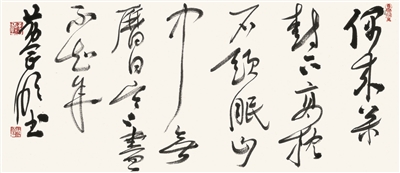 偶来松
树下高枕
石頭眠山
中無
曆日寒盡
不知年
书